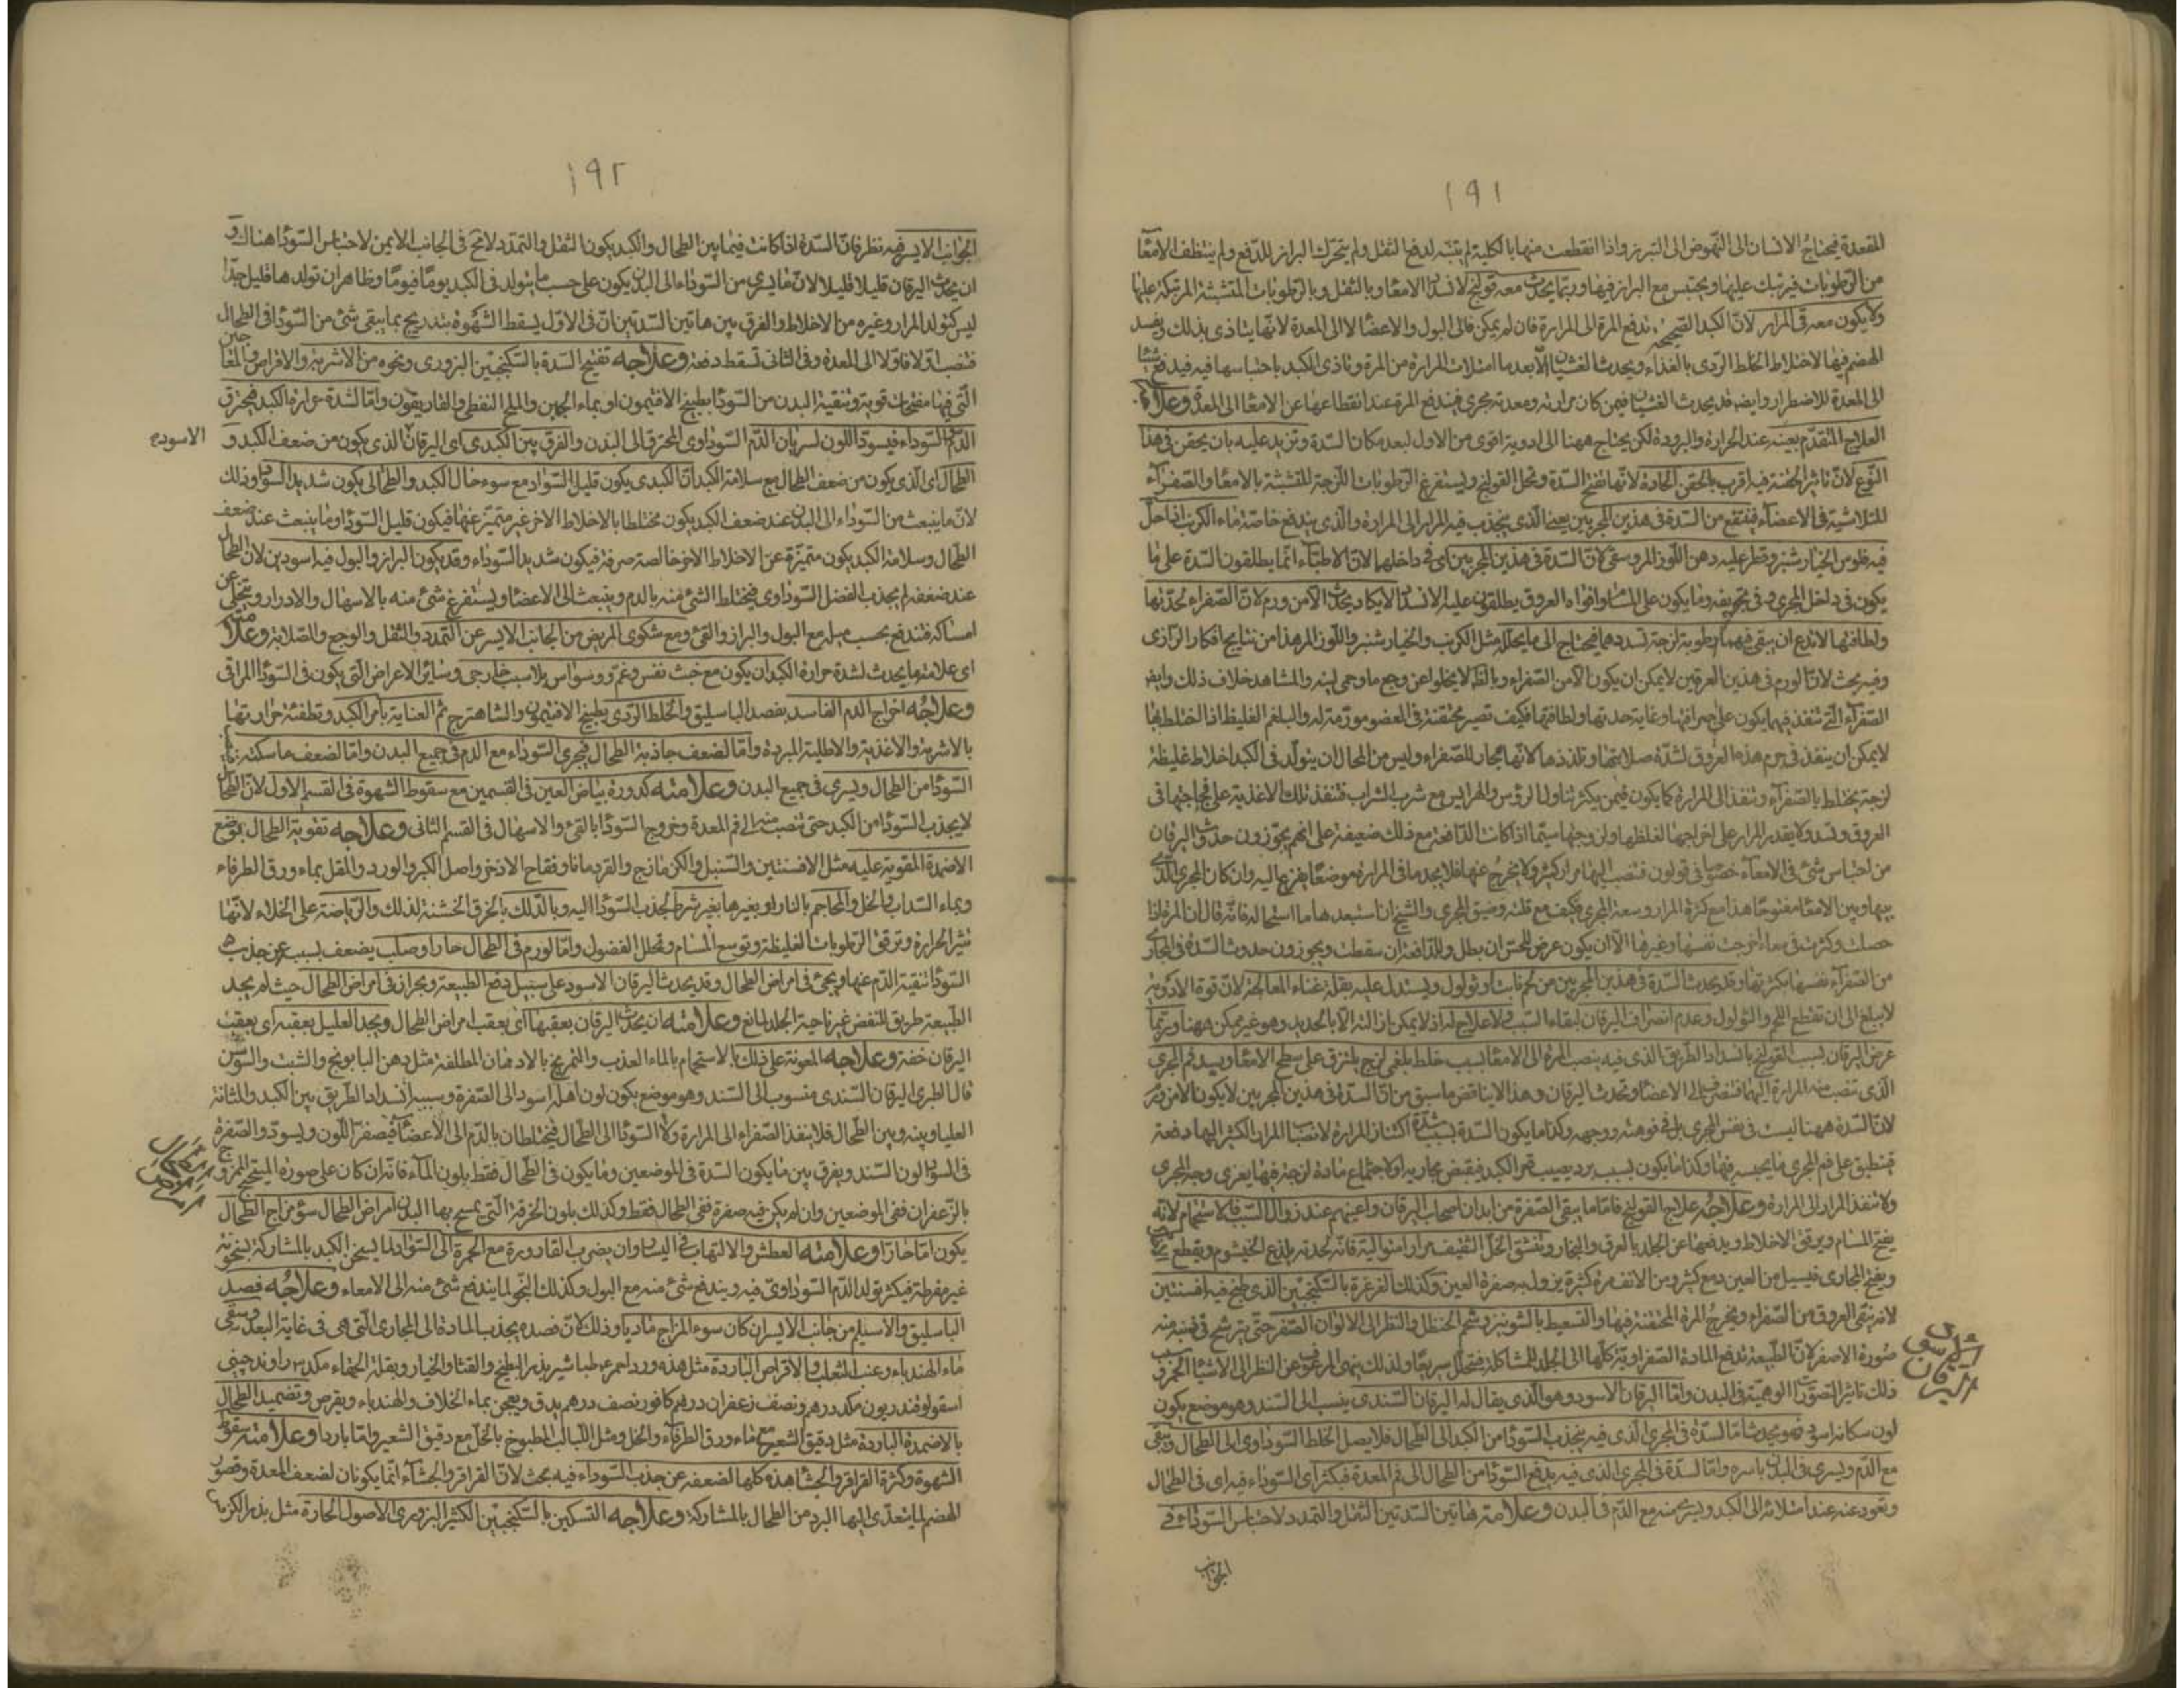 ١٩١
المقعدة فيحتاج الانسان الى النهوض الى التبرز واذا انقطعت منها بالكلية لم يتنبه لدفع الثفل ولم يتحرك البراز للدفع ولم ينتظف الامعا
من الرطوبات فيرتبك عليها ويحتبس مع البراز فيها وربما يحدث معه قولنج لانسداد الامعا وبالثفل وبالرطوبات المتشبثة المرتبكة عليها
ولا يكون معه قئ المرار لان الكبد الصحيحة تدفع المرة الى المرارة فان لم يمكن فالى البول والاعضا لا الى المعدة لانها يتاذى بذلك ويفسد
الهضم فيها لاختلاط الخلط الردى بالغذاء ويحدث الغثيان الا بعد ما امتلات المرارة من المرة وتاذى الكبد باحتباسها فيه فيدفع شيئا
الى المعدة للاضطرار وايضا قد يحدث الغثيان فيمن كان مرارته ومعدته مجرى فيندفع المرة عند انقطاعها عن الامعا الى المعدة وعلاجه
العلاج المتقدم بعينه عند الحرارة والبرودة لكن يحتاج ههنا الى ادوية اقوى من الاول لبعد مكان السدة وتزيد عليه بان يحقن فى هذا
النوع لان تاثير الحقنة فيه اقرب بالحقن الحادة لانها تفتح السدة وتحل القولنج ويستفرغ الرطوبات اللزجة المتشبثة بالامعا والصفراء
المتلاشية فى الاعضاء فينتفع من السدة فى هذين المجريين يعنى الذى يجذب فيه المرار الى المرارة والذى يندفع خاصة ماء الكرنب اذا حل
فيه فلوس الخيار شنبر وقطر عليه دهن اللوز المر وسقى لان السدة فى هذين المجريين اى فى داخلهما لان الاطباء انما يطلقون السدة على ما
يكون فى داخل المجرى وفى تجويفه وما يكون على المسام وافواه العروق يطلقون عليه الانسداد لا يكاد يحدث الا من ورم لان الصفراء لحدتها
ولطافتها لا تدع ان يبقى فيهما رطوبة لزجة تسددهما فيحتاج الى ما يحلله مثل الكرنب والخيار شنبر واللوز المر هذا من نتايج افكار الرازى
وفيه بحث لان الورم فى هذين العرقين لا يمكن ان يكون الا من الصفراء وبالظ لا يخلوا عن وجع ما وحمى لينة والمشاهد خلاف ذلك وايضا
الصفراء التى تنفذ فيهما يكون على صرافتها وغاية حدتها ولطافتها فكيف تصير محتقنة فى العضو مورمة له والبلغم الغليظ اذا اختلط بها
لا يمكن ان ينفذ فى جرم هذه العروق لشدة صلابتها وتلذذها لانها مجار للصفراء وليس من المحال ان يتولد فى الكبد اخلاط غليظة
لزجة يختلط بالصفراء وتنفذ الى المرارة كما يكون فيمن يكثر تناول الرؤس والهرايس مع شرب الشراب فتنفذ تلك الاغذية على فجاجتها فى
العروق وتسد ولا يقدر المرار على اخراجها لغلظها ولزوجتها سيما اذا كانت الدافعة مع ذلك ضعيفة على انهم يجوزون حدوث اليرقان
من احتباس شئ فى الامعاء خصوصا فى قولون فتنصب اليها مرار كثير ولا يخرج عنها فلا يجد ما فى المرارة موضعا يفرغ اليه وان كان المجرى الذى
بينها وبين الامعا مفتوحا هذا مع كثرة المرار وسعة المجرى فكيف مع قلته وضيق المجرى والشيخ ان استبعد هذا ما استحاله فانه قال ان المرة اذا
حصلت وكثرت فى معاء اخرجت نفسها وغيرها الا ان يكون عرض للحس ان بطل وللدافعة ان سقطت ويجوزون حدوث السدة فى المجارى
من الصفراء نفسها بكثرتها وقد يحدث السدة فى هذين المجريين من لحم نابت او ثولول ويستدل عليه بقلة غناء المعالجة لان قوة الادوية
لا يبلغ الى ان تقطع اللحم والثولول وعدم انصراف اليرقان لبقاء السبب ولا علاج له اذ لا يمكن ازالته الا بالحديد وهو غير ممكن ههنا وربما
عرض اليرقان بسبب القولنج بانسداد الطريق الذى فيه ينصب المرة الى الامعا بسبب خلط بلغمى لزج يلتزق على سطح الامعا ويسد فم المجرى
الذى تنصب منه المرارة اليها فتنصرف الى الاعضا ويحدث اليرقان وهذا لا يناقض ما سبق من ان السدة فى هذين المجريين لا يكون الا من ورم
لان السدة ههنا ليست فى نفس المجرى بل فى فوهته ووجهه وكذا ما يكون السدة بسبب شدة اكتناز المرارة لانصباب المرار الكثير اليها دفعة
فينطبق على فم المجرى ما يحبسه فيها وكذا ما يكون بسبب برد يصيب قعر الكبد فيقبض مجاريه او لاجتماع مادة لزجة فيها يغرى وجه المجرى
ولا تنفذ المرار الى المرارة وعلاجه علاج القولنج فاما ما يبقى الصفرة من ابدان اصحاب اليرقان واعينهم عند زوال السبب فالاستحمام لانه
يفتح المسام ويرقق الاخلاط ويدفعها عن الجلد بالعرق والبخار وتنشق الخل الثقيف مرارا متوالية فانه لحدته يلذع الخيشوم ويقطع
ويفتح المجارى فيسيل من العين دمع كثير ومن الانف مرة كثيرة يزول به صفرة العين وكذلك الغرغرة بالسكنجبين الذى طبخ فيه افسنتين
لانه ينقى العروق من الصفراء ويخرج المرة المحتقنة فيها والتسعيط بالشونيز وشم الحنظل والنظر الى الالوان الصفر حتى يترشح فى ذهنه منه
صورة الاصفر لان الطبيعة تدفع المادة الصفراوية كلها الى الجلد للمشاكلة فتحلل سريعا ولذلك ينهى المرعوف عن النظر الى الاشيا الحمر و
ذلك تاثير التصورات الوهمية فى البدن واما اليرقان الاسود وهو الذى يقال له اليرقان السندى ينسب الى السند وهو موضع يكون
لون سكانه اسود فهو يحدث اما السدة فى المجرى الذى فيه ينجذب السودا من الكبد الى الطحال فلا يصل الخلط السوداوى الى الطحال ويبقى
مع الدم ويسرى فى البدن باسره واما السدة فى المجرى الذى فيه يدفع السودا من الطحال الى فم المعدة فيكثر اى السوداء فيه اى فى الطحال
ويعود عنه عند امتلائه الى الكبد ويسرى منه مع الدم فى البدن وعلامة هاتين السدتين الثقل والتمدد لاحتباس السوداء فى
اليرقان
الجوانب
١٩٢
الجوانب الايسر فيه نظر فان السدة اذا كانت فيما بين الطحال والكبد يكون الثقل والتمدد لا مح فى الجانب الايمن لاحتباس السودا هناك و
ان يحدث اليرقان قليلا قليلا لان ما يسرى من السوداء الى البدن يكون على حسب ما يتولد فى الكبد يوما فيوما وظاهر ان تولدها قليل جدا
ليس كتولد المرار وغيره من الاخلاط والفرق بين هاتين السدتين ان فى الاول يسقط الشهوة بتدريج بما يبقى شئ من السودا فى الطحال
فتنصب اولا فاولا الى المعدة وفى الثانى تسقط دفعة وعلاجه تفتيح السدة بالسكنجبين البزورى ونحوه من الاشربة والاقراص والمعاجين
التى فيها مفتحات قوية وتنقية البدن من السودا بطبيخ الافتيمون او بماء الجبن والملح النفطى والغاريقون واما لشدة حرارة الكبد فيحرق
الدم السوداء فيسود اللون لسريان الدم السوداوى المحترق الى البدن والفرق بين الكبدى اى اليرقان الذى يكون من ضعف الكبد و
الاسود
الطحالى اى الذى يكون من ضعف الطحال مع سلامة الكبد ان الكبدى يكون قليل السواد مع سوء حال الكبد والطحالى يكون شديد السواد وذلك
لان ما ينبعث من السوداء الى البدن عند ضعف الكبد يكون مختلطا بالاخلاط الاخر غير متميز عنها فيكون قليل السودا وما ينبعث عند ضعف
الطحال وسلامة الكبد يكون متميزة عن الاخلاط الاخر خالصة صرفة فيكون شديد السوداء وقد يكون البراز والبول فيه اسودين لان الطحال
عند ضعفه لم يجذب الفضل السوداوى فيختلط الشئ منه بالدم وينبعث الى الاعضا ويستفرغ شئ منه بالاسهال والادرار ويتخلى عن
امساكه فتندفع بحسب ميله مع البول والبراز والقئ ومع شكوى المريض من الجانب الايسر عن التمدد والثقل والوجع والصلابة وعلامته
اى علامة ما يحدث لشدة حرارة الكبد ان يكون مع خبث نفس وغم ووسواس بلا سبب خارجى وسائر الاعراض التى يكون فى السودا المراقى
وعلاجه اخراج الدم الفاسد بفصد الباسليق والخلط الردى بطبيخ الافتيمون والشاهترج ثم العناية بامر الكبد وتطفئة حرارتها
بالاشربة والاغذية والاطلية المبردة واما لضعف جاذبة الطحال فيجرى السوداء مع الدم فى جميع البدن واما لضعف ماسكته
السودا من الطحال ويسرى فى جميع البدن وعلامته كدورة بياض العين فى القسمين مع سقوط الشهوة فى القسم الاول لان الطحال
لا يجذب السودا من الكبد حتى تنصب منه الى فم المعدة وخروج السودا بالقئ والاسهال فى القسم الثانى وعلاجه تقوية الطحال بوضع
الاضمدة المقوية عليه مثل الافسنتين والسنبل والكزمازج والقردمانا وفقاح الاذخر واصل الكبر والورد والمقل بماء ورق الطرفاء
وبماء السداب والخل والمحاجم بالنار او بغيرها بغير شرط لجذب السودا اليه وبالدلك بالخرق الخشنة لذلك والرياضة على الخلاء لانها
تثير الحرارة وترقق الرطوبات الغليظة وتوسع المسام وتحلل الفضول واما لورم فى الطحال حار او صلب يضعف لسبب عن جذب
السودا تنقية الدم عنها ويجئ فى امراض الطحال وقد يحدث اليرقان الاسود على سبيل دفع الطبيعة وبحران فى امراض الطحال حيث لم يجد
الطبيعة طريق للنفض غير ناحية الجلد لمانع وعلامته ان يحدث اليرقان بعقبها اى بعقب امراض الطحال ويجد العليل بعقبه اى بعقب
اليرقان خفة وعلاجه المعونة على ذلك بالاستحمام بالماء العذب والتمريخ بالادهان الملطفة مثل دهن البابونج والشبت والسوسن
قال الطبرى اليرقان السندى منسوب الى السند وهو موضع يكون لون اهله اسود الى الصفرة وسببه انسداد الطريق بين الكبد والمثانة
العليا وبينه وبين الطحال فلا ينفذ الصفراء الى المرارة ولا السودا الى الطحال فيختلطان بالدم الى الاعضا فيصفر اللون ويسود والصفرة
فى السواد لون السند ويفرق بين ما يكون السدة فى الموضعين وما يكون فى الطحال فقط بلون الماء فانه ان كان على صورة الممزوج
امراض الطحال
بالزعفران ففى الموضعين وان لم يكن فيه صفرة ففى الطحال فقط وكذلك بلون الخرقة التى يمسح بها البدن امراض الطحال سوء مزاج الطحال
يكون اما حارا وعلامته العطش والالتهاب فى اليسار وان يضرب القارورة مع الحمرة الى السواد لما يسخن الكبد بالمشاركة سخونة
غير مفرطة فيكثر تولد الدم السوداوى فيه ويندفع شئ منه مع البول وكذلك النجو لما يندفع شئ منه الى الامعاء وعلاجه فصد
الباسليق والاسيلم من جانب الايسر ان كان سوء المزاج ماديا وذلك لان فصده يجذب المادة الى المجارى التى هى فى غاية البعد وسقى
ماء الهندباء وعنب الثعلب والاقراص الباردة مثل هذه ورد احمر طباشير بذر البطيخ والقثا والخيار وبقلة الحمقاء مكد راوند چينى
اسقولوقندريون مكد درهم ونصف زعفران درهم كافور نصف درهم يدق ويعجن بماء الخلاف والهندباء ويقرص وتضميد الطحال
بالاضمدة الباردة مثل دقيق الشعير مع ماء ورق الطرفاء والخل ومثل اللبلاب المطبوخ بالخل مع دقيق الشعير واما باردا وعلامته سقوط
الشهوة وكثرة القراقر والجشا هذه كلها لضعفه عن جذب السوداء فيه بحث لان القراقر والجشاء انما يكونان لضعف المعدة وقصور
الهضم لما يتعدى اليها البرد من الطحال بالمشاركة وعلاجه التسكين بالسكنجبين الكثير البزورى الاصول الحارة مثل بذر الكرفس